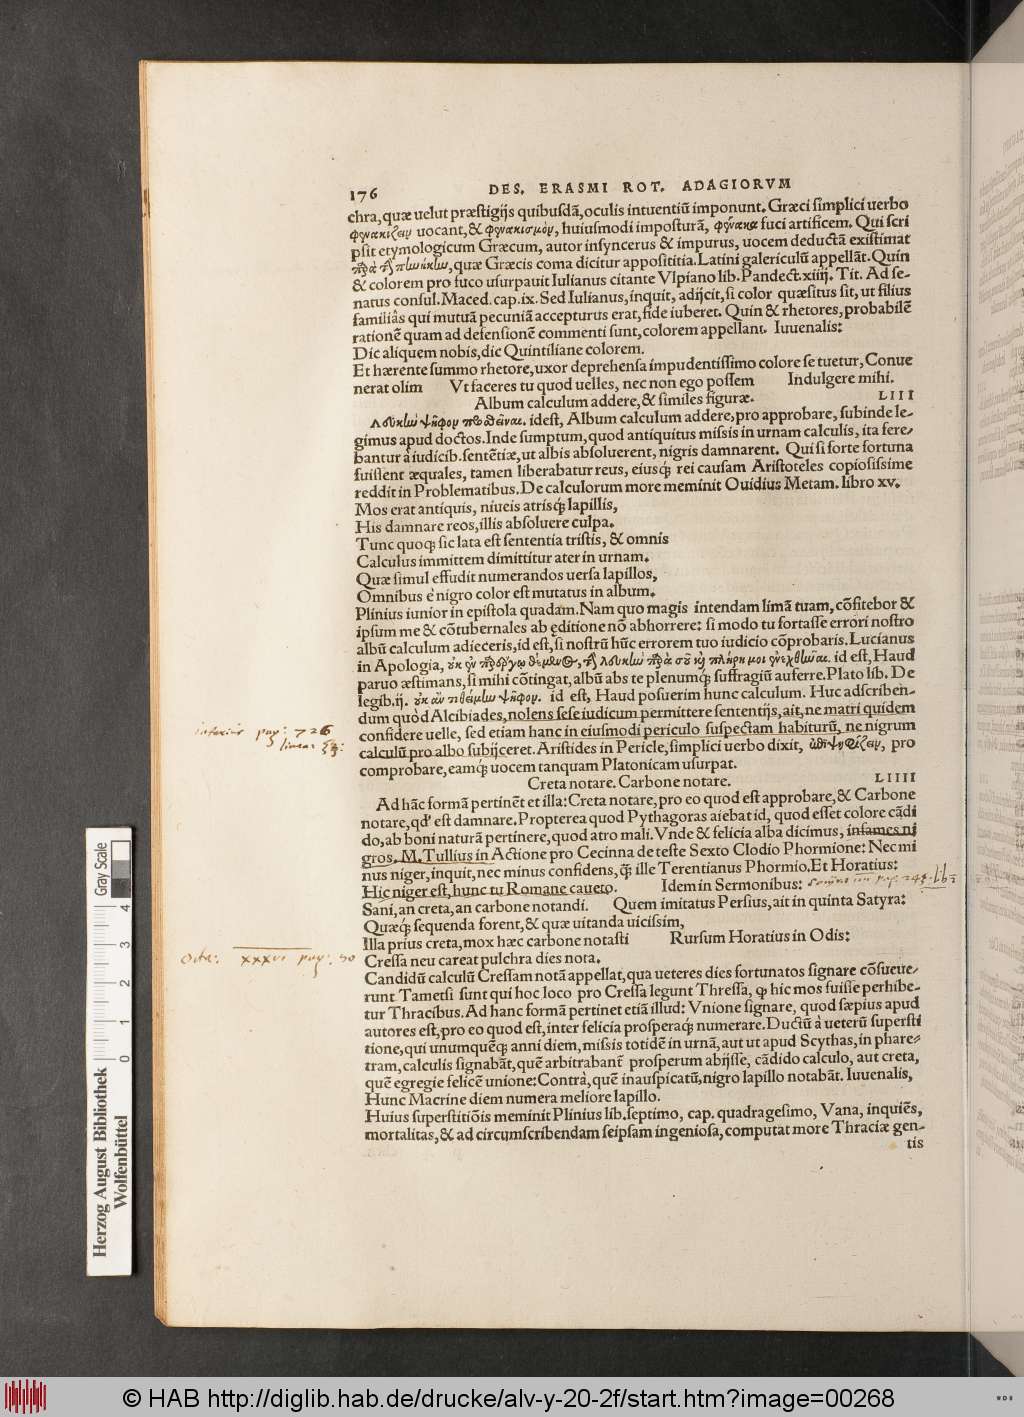 176 DES. ERASMI ROT. ADAGIORVM
chra, quæ uelut præstigijs quibusdã, oculis intuentiũ imponunt. Græci simplici uerbo
φενακίζειν uocant, & φενακισμὸν, huiusmodi imposturã, φενάκαι fuci artificem. Qui scri
psit etymologicum Græcum, autor insyncerus & impurus, uocem deductã existimat
quæ Græcis coma dicitur appositítia. Latini galericulũ appellãt. Quin
& colorem pro fuco usurpauit Iulianus citante Vlpiano lib. Pandect. xiiij. Tit. Ad se-
natus consul. Maced. cap. ix. Sed Iulianus, inquit, adijcit, si color quæsitus sit, ut filius
familiâs qui mutuã pecuniã accepturus erat, fide iuberet. Quin & rhetores, probabilẽ
rationẽ quam ad defensionẽ commenti sunt, colorem appellant. Iuuenalis:
Dic aliquem nobis, dic Quintiliane colorem.
Et hærente summo rhetore, uxor deprehensa impudentissimo colore se tuetur, Conue
nerat olim Vt faceres tu quod uelles, nec non ego possem Indulgere mihi.
Album calculum addere, & similes figuræ. LIII
Λευκὴν ψῆφον προσθεῖναι. idest, Album calculum addere, pro approbare, subinde le-
gimus apud doctos. Inde sumptum, quod antiquitus missis in urnam calculis, ita fere-
bantur à iudicib. sentẽtiæ, ut albis absoluerent, nigris damnarent. Qui si forte fortuna
fuissent æquales, tamen liberabatur reus, eiusq́; rei causam Aristoteles copiosissime
reddit in Problematibus. De calculorum more meminit Ouidius Metam. libro xv.
Mos erat antiquis, niueis atrisq́; lapillis,
His damnare reos, illis absoluere culpa.
Tunc quoq; sic lata est sententia tristis, & omnis
Calculus immittem dimittitur ater in urnam.
Quæ simul effudit numerandos uersa lapillos,
Omnibus è nigro color est mutatus in album.
Plinius iunior in epistola quadam. Nam quo magis intendam limã tuam, cõfitebor &
ipsum me & cõtubernales ab ęditione nõ abhorrere: si modo tu fortasse errori nostro
albũ calculum adieceris, id est, si nostrũ hũc errorem tuo iudicio cõprobaris. Lucianus
in Apologia, id est, Haud
paruo æstimans, si mihi cõtingat, albũ abs te plenumq́; suffragiũ auferre. Plato lib. De
legib. ij. οὐκ ἂν τιθείμην ψῆφον. id est, Haud posuerim hunc calculum. Huc adscriben-
dum quòd Alcibiades, nolens sese iudicum permittere sententijs, ait, ne matri quidem
confidere uelle, sed etiam hanc in eiusmodi periculo suspectam habiturũ, ne nigrum
inferius pag: 726
linea:
calculũ pro albo subijceret. Aristides in Pericle, simplici uerbo dixit, ἐπιψηφίζειν, pro
comprobare, eamq́; uocem tanquam Platonicam usurpat.
Creta notare. Carbone notare. LIIII
Ad hãc formã pertinẽt et illa: Creta notare, pro eo quod est approbare, & Carbone
notare, qd' est damnare. Propterea quod Pythagoras aiebat id, quod esset colore cãdi
do, ab boni naturã pertinere, quod atro mali. Vnde & felicia alba dicimus, infames ni
gros. M. Tullius in Actione pro Cecinna de teste Sexto Clodio Phormione: Nec mi
nus niger, inquit, nec minus confidens, q̃; ille Terentianus Phormio. Et Horatius:
Hic niger est, hunc tu Romane caueto. Idem in Sermonibus:
Sani, an creta, an carbone notandi. Quem imitatus Persius, ait in quinta Satyra:
Quæq́; sequenda forent, & quæ uitanda uicissim,
Illa prius creta, mox hæc carbone notasti Rursum Horatius in Odis:
Oda: xxxvi pag: 30
Cressa neu careat pulchra dies nota.
Candidũ calculũ Cressam notã appellat, qua ueteres dies fortunatos signare cõsueue-
runt Tametsi sunt qui hoc loco pro Cressa legunt Thressa, ꝙ hic mos fuisse perhibe-
tur Thracibus. Ad hanc formã pertinet etiã illud: Vnione signare, quod sæpius apud
autores est, pro eo quod est, inter felicia prosperaq́; numerare. Ductũ à ueterũ supersti
tione, qui unumquẽq; anni diem, missis totidẽ in urnã, aut ut apud Scythas, in phare-
tram, calculis signabãt, quẽ arbitrabant' prosperum abijsse, cãdido calculo, aut creta,
quẽ egregie felicẽ unione: Contrà, quẽ inauspicatũ, nigro lapillo notabãt. Iuuenalis,
Hunc Macrine diem numera meliore lapillo.
Huius superstitiõis meminit Plinius lib. septimo, cap. quadragesimo, Vana, inquiẽs,
mortalitas, & ad circumscribendam seipsam ingeniosa, computat more Thraciæ gen-
tis
Herzog August Bibliothek
Wolfenbüttel
Gray Scale
0 1 2 3 4
© HAB http://diglib.hab.de/drucke/alv-y-20-2f/start.htm?image=00268